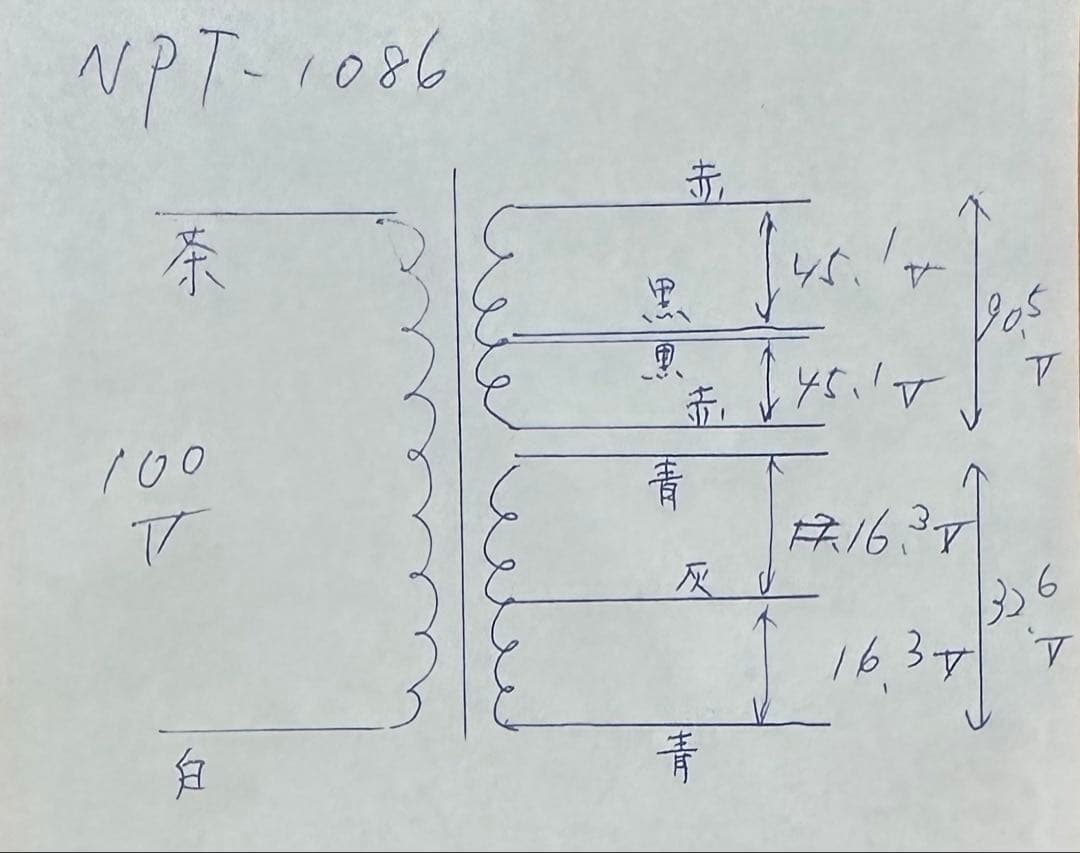 NPT-1086
赤
茶
45.1V
黒
90.5V
黒
45.1V
赤
100V
青
16.3V
灰
32.6V
16.3V
青
白